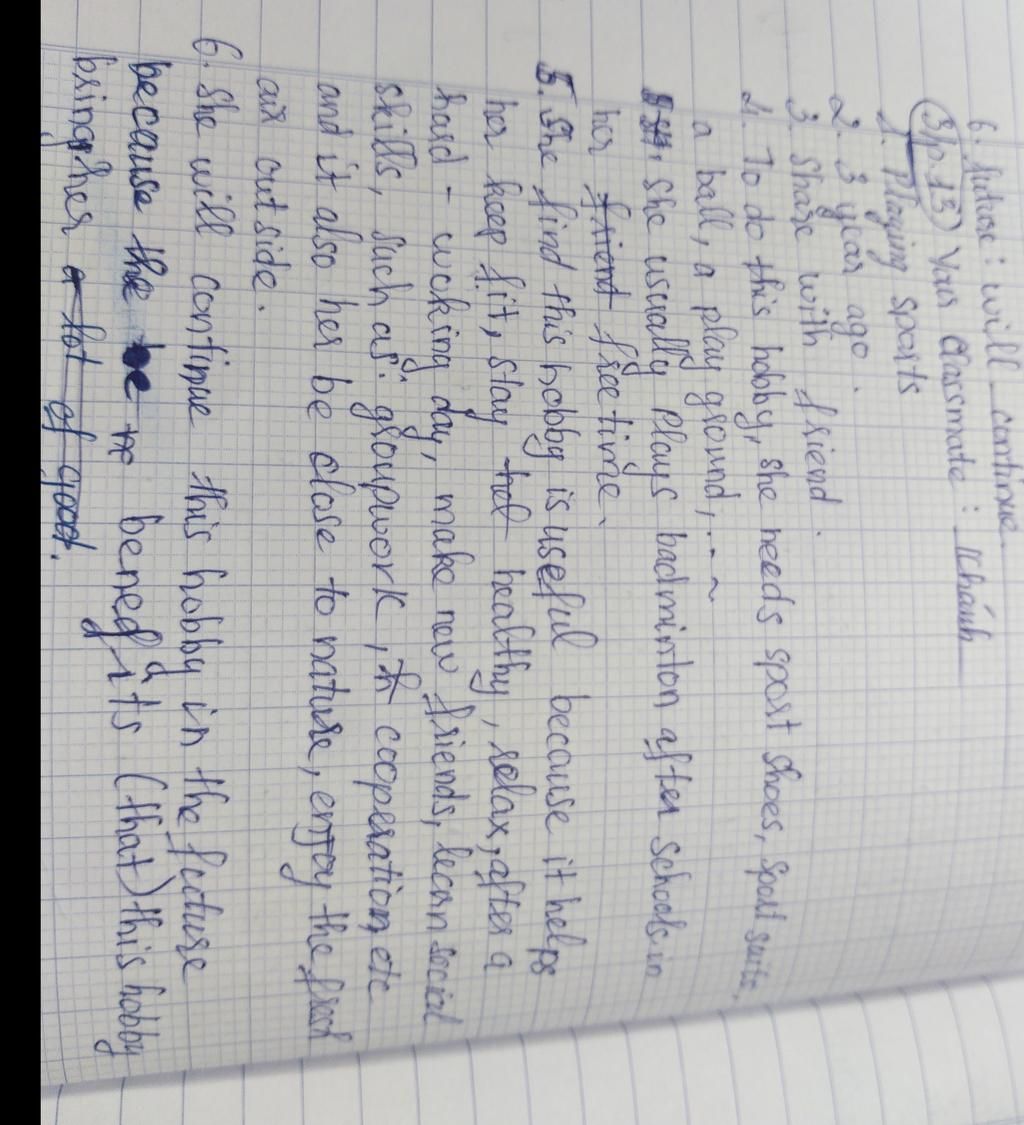 6. future : will continue
3/p.13) Your classmate : Khánh
1. Playing sports
2. 3 year ago.
3. Share with friend.
4. To do this hobby, she needs sport shoes, sport suits,
a ball, a play ground,...
She usually plays badminton after schools in
her friend free time.
5. She find this hobby is useful because it helps
her keep fit, stay hel healthy, relax, after a
hard - wocking day, make new friends, learn social
skills, such as: groupwork, cooperation, etc
and it also her be close to nature, enjoy the fresh
air outside.
6. She will continue this hobby in the foture
because the be benefits (that) this hobby
brings her a lot of good.